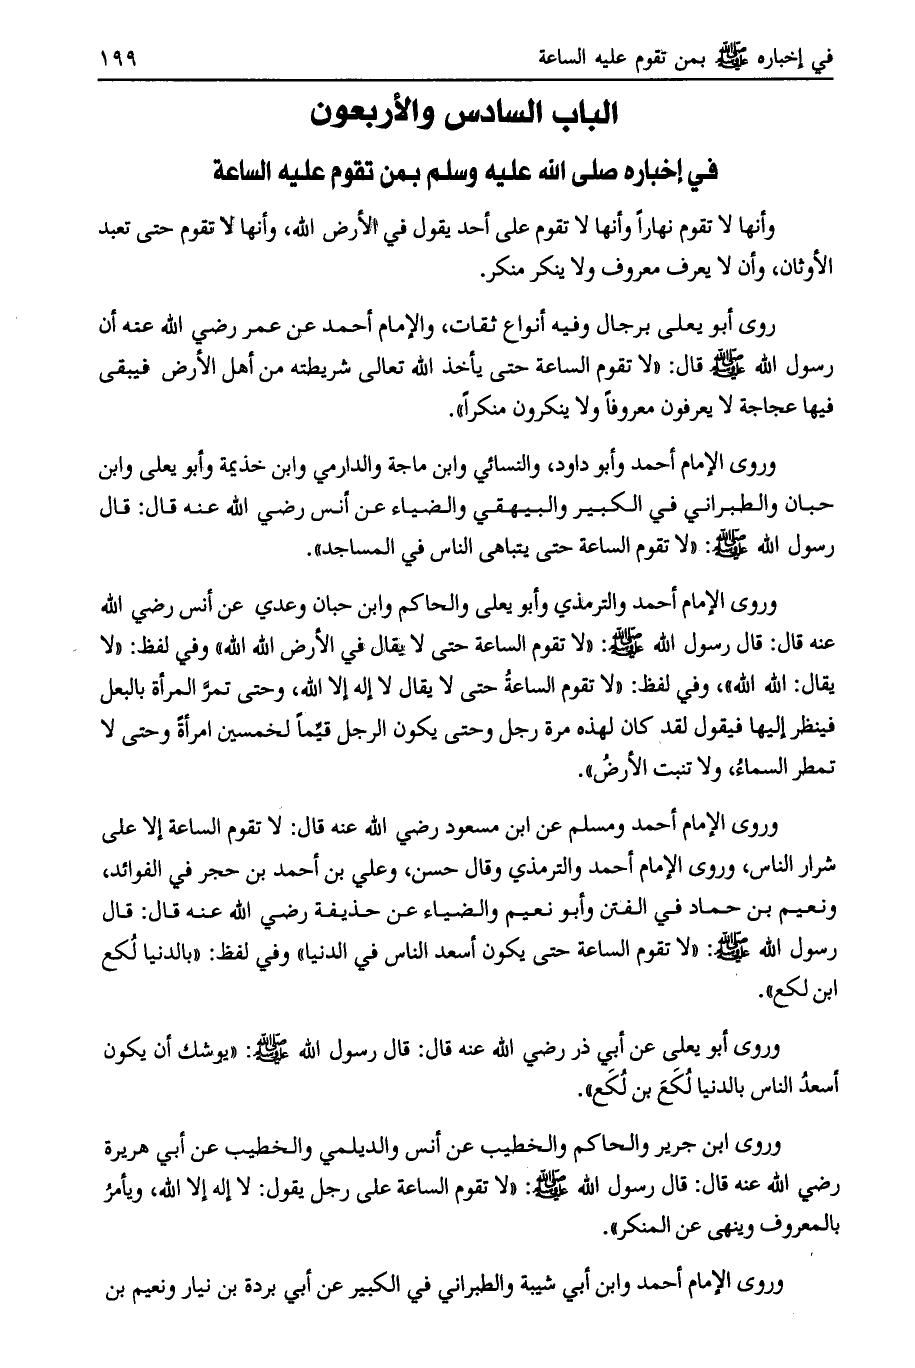 في إخباره ﷺ بمن تقوم عليه الساعة ١٩٩
الباب السادس والأربعون
في إخباره صلى الله عليه وسلم بمن تقوم عليه الساعة
وأنها لا تقوم نهاراً وأنها لا تقوم على أحد يقول في الأرض الله، وأنها لا تقوم حتى تعبد
الأوثان، وأن لا يعرف معروف ولا ينكر منكر.
روى أبو يعلى برجال وفيه أنواع ثقات، والإمام أحمد عن عمر رضي الله عنه أن
رسول الله ﷺ قال: «لا تقوم الساعة حتى يأخذ الله تعالى شريطته من أهل الأرض فيبقى
فيها عجاجة لا يعرفون معروفاً ولا ينكرون منكراً».
وروى الإمام أحمد وأبو داود، والنسائي وابن ماجة والدارمي وابن خذيمة وأبو يعلى وابن
حبان والطبراني في الكبير والبيهقي والضياء عن أنس رضي الله عنه قال: قال
رسول الله ﷺ: «لا تقوم الساعة حتى يتباهى الناس في المساجد».
وروى الإمام أحمد والترمذي وأبو يعلى والحاكم وابن حبان وعدي عن أنس رضي الله
عنه قال: قال رسول الله ﷺ: «لا تقوم الساعة حتى لا يقال في الأرض الله الله» وفي لفظ: «لا
يقال: الله الله»، وفي لفظ: «لا تقوم الساعةُ حتى لا يقال لا إله إلا الله، وحتى تمرَّ المرأة بالبعل
فينظر إليها فيقول لقد كان لهذه مرة رجل وحتى يكون الرجل قيِّماً لخمسين امرأةً وحتى لا
تمطر السماءُ، ولا تنبت الأرضُ».
وروى الإمام أحمد ومسلم عن ابن مسعود رضي الله عنه قال: لا تقوم الساعة إلا على
شرار الناس، وروى الإمام أحمد والترمذي وقال حسن، وعلي بن أحمد بن حجر في الفوائد،
ونعيم بن حماد في الفتن وأبو نعيم والضياء عن حذيفة رضي الله عنه قال: قال
رسول الله ﷺ: «لا تقوم الساعة حتى يكون أسعد الناس في الدنيا» وفي لفظ: «بالدنيا لُكع
ابن لكع».
وروى أبو يعلى عن أبي ذر رضي الله عنه قال: قال رسول الله ﷺ: «يوشك أن يكون
أسعدُ الناس بالدنيا لُكَعَ بن لُكَع».
وروى ابن جرير والحاكم والخطيب عن أنس والديلمي والخطيب عن أبي هريرة
رضي الله عنه قال: قال رسول الله ﷺ: «لا تقوم الساعة على رجل يقول: لا إله إلا الله، ويأمرُ
بالمعروف وينهى عن المنكر».
وروى الإمام أحمد وابن أبي شيبة والطبراني في الكبير عن أبي بردة بن نيار ونعيم بن